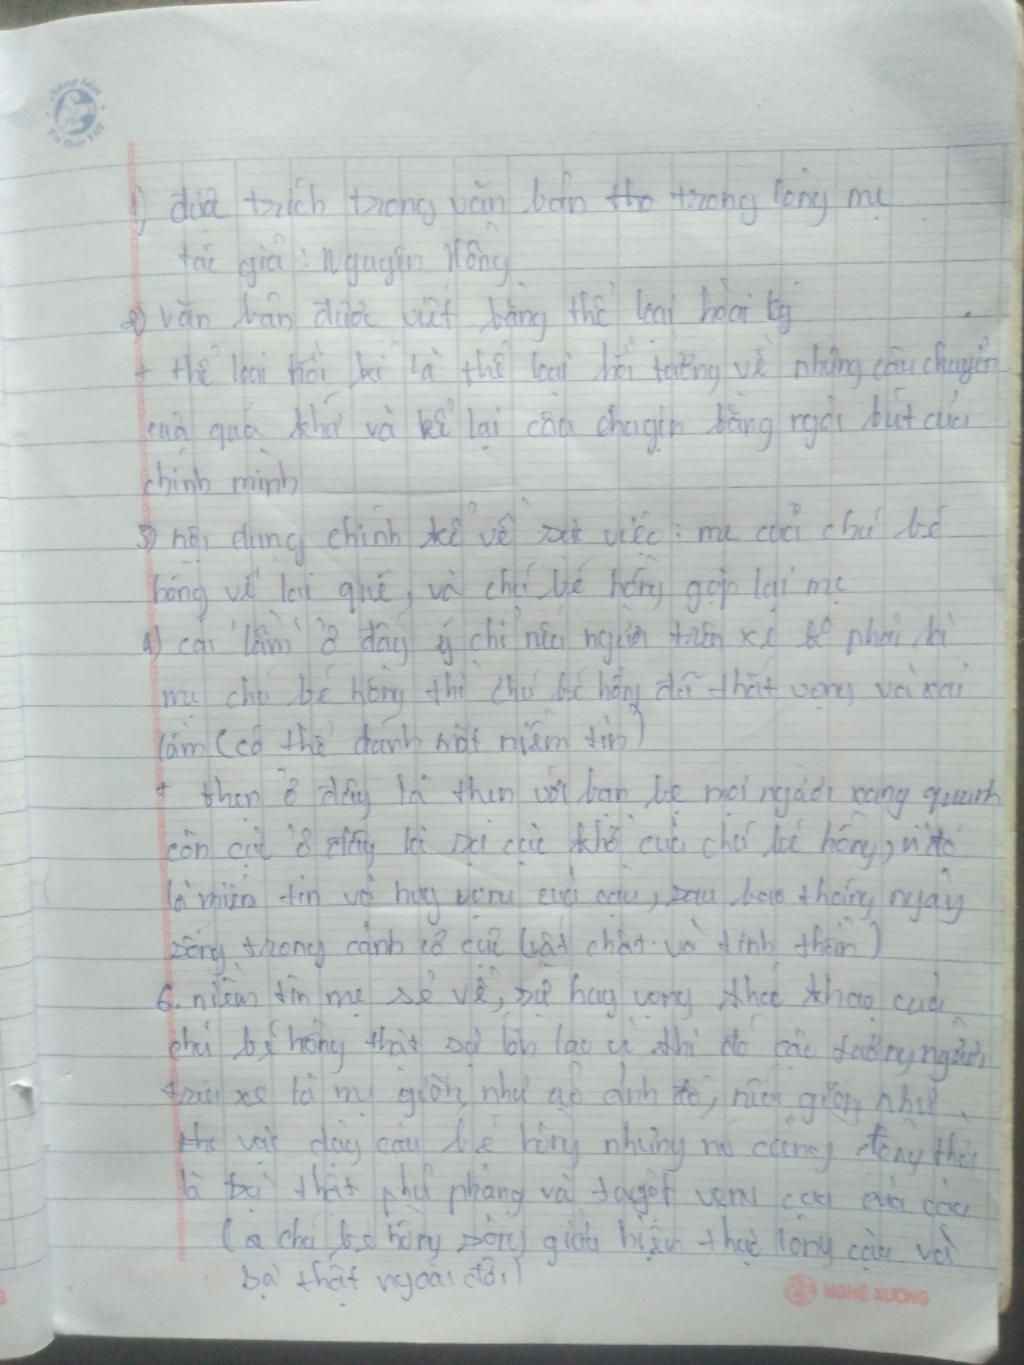 1) được trích trong văn bản thơ trong lòng mẹ
tác giả: Nguyên Hồng
2) văn bản được viết bằng thể loại hồi ký
+ thể loại hồi kí là thể loại hồi tưởng về những câu chuyện
của quá khứ và kể lại câu chuyện bằng ngòi bút của
chính mình
3) nội dung chính kể về sự việc: mẹ của chú bé
hồng về lại quê, và chú bé hồng gặp lại mẹ
4) cái "lầm" ở đây ý chỉ nếu người trên xe phải là
mẹ chú bé hồng thì chú bé hồng đã thất vọng và sai
lầm (có thể đánh mất niềm tin)
+ thẹn ở đây là thẹn với bạn bè mọi người xang quanh
còn cực ở đây là sự cực khổ của chú bé hồng, vì đó
là miền tin và huy vọng của cậu, sau bao tháng ngày
sống trong cảnh cơ cực (vật chất và tinh thần)
6. niềm tin mẹ sẽ về, sự huy vọng thao của
chú bé hồng thật sự lớn lao vì khi đó cậu tưởng người
trên xe là mẹ giống như ảo ảnh đó, nếu giống như
vực dậy cậu bé hồng nhưng nó cũng đồng thời
là sự thật phũ phàng và tuyệt vọng của cậu
(a chú bé hồng sống giữa hiện thực lòng cậu và
sự thật ngoài đời)
NGHỆ XƯƠNG